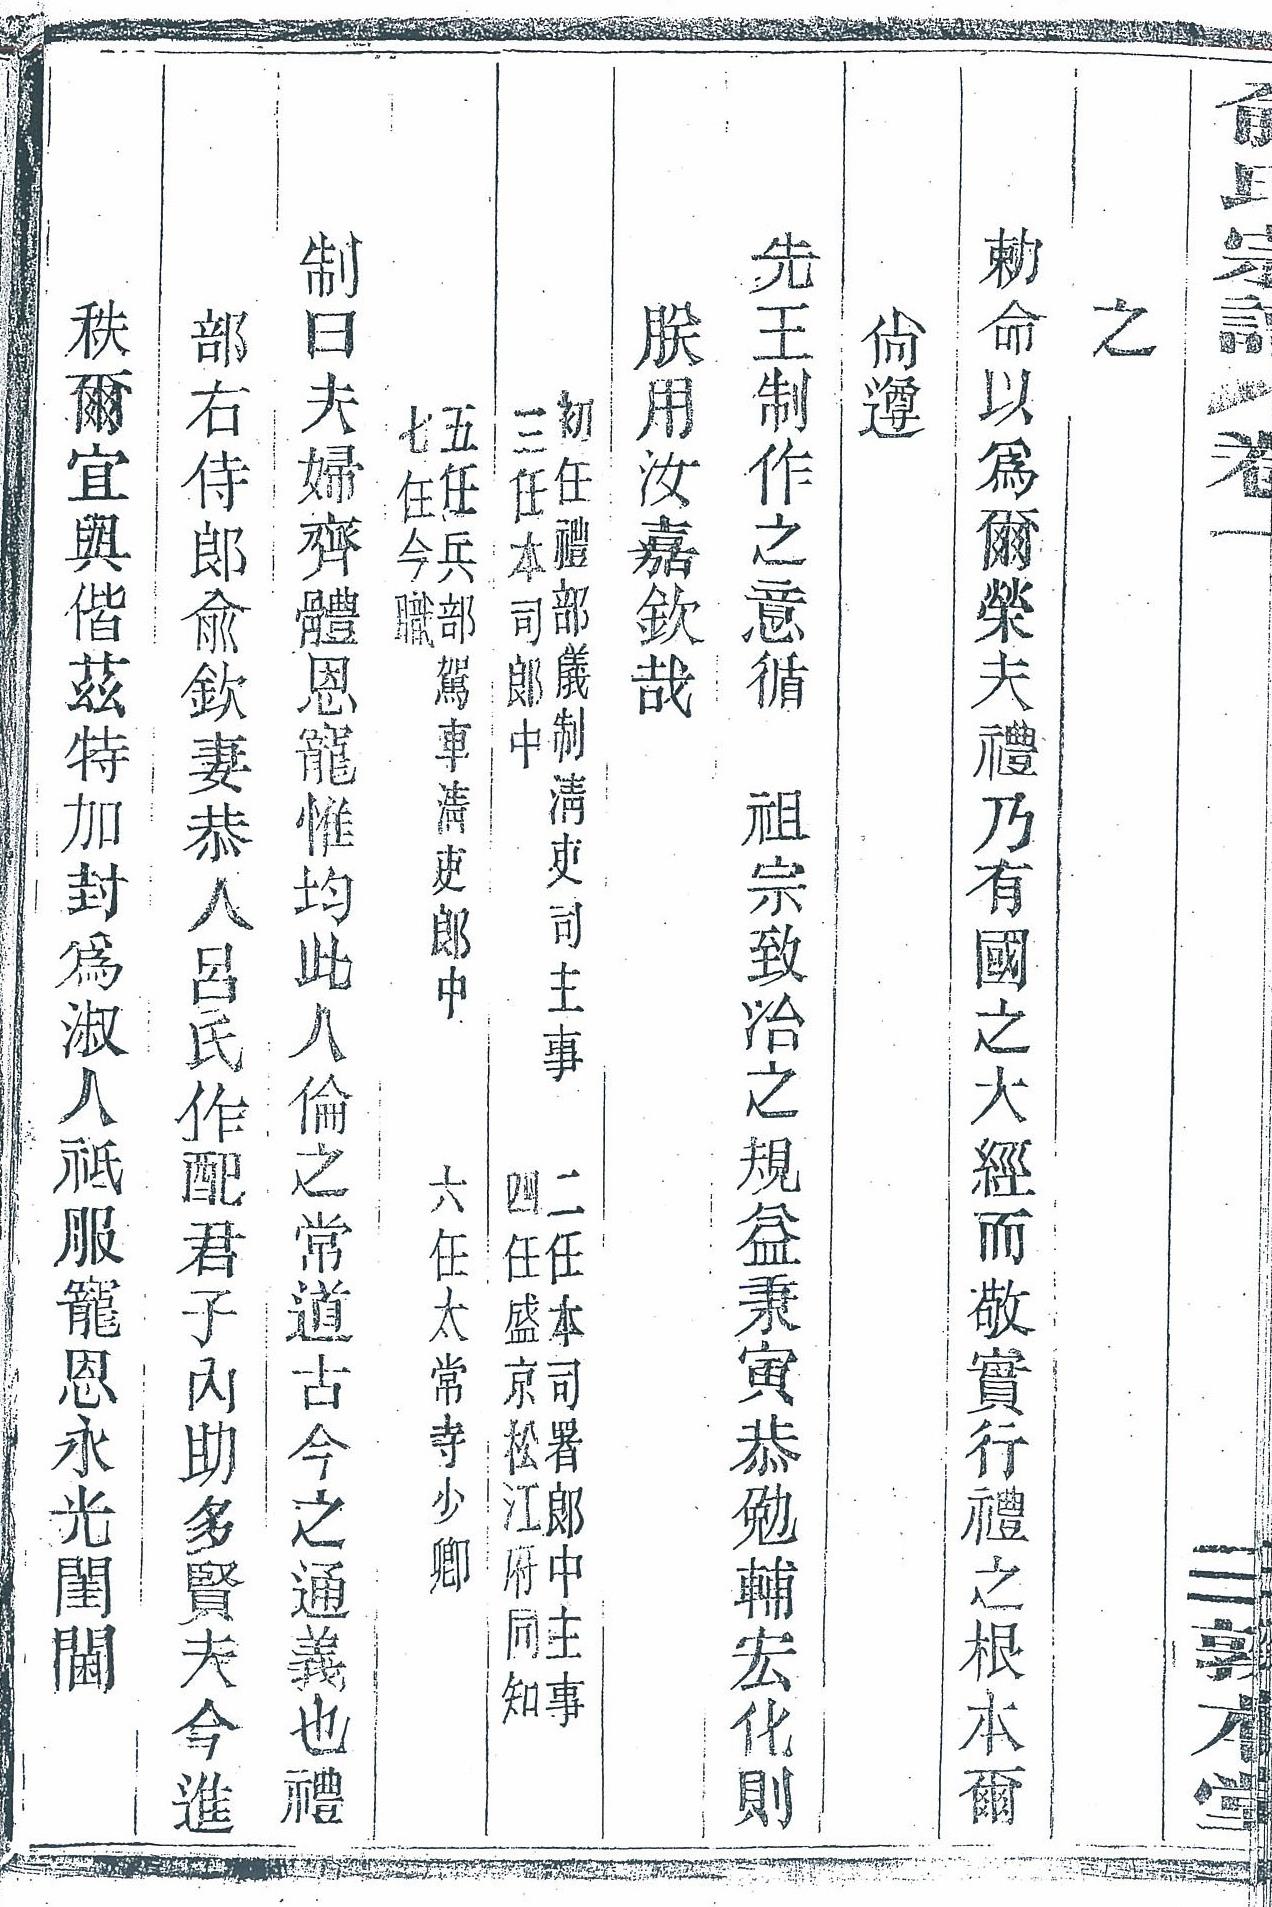 俞氏宗譜 卷一 三 敦本堂
之
勅命以爲爾榮夫禮乃有國之大經而敬實行禮之根本爾
尙遵
先王制作之意循 祖宗致治之規益秉寅恭勉輔宏化則
朕用汝嘉欽哉
初任禮部儀制淸吏司主事 二任本司署郎中主事
三任本司郎中 四任盛京松江府同知
五任兵部駕車淸吏郎中 六任太常寺少卿
七任今職
制曰夫婦齊體恩寵惟均此人倫之常道古今之通義也禮
部右侍郎俞欽妻恭人呂氏作配君子內助多賢夫今進
秩爾宜與偕茲特加封爲淑人祇服寵恩永光閨閫